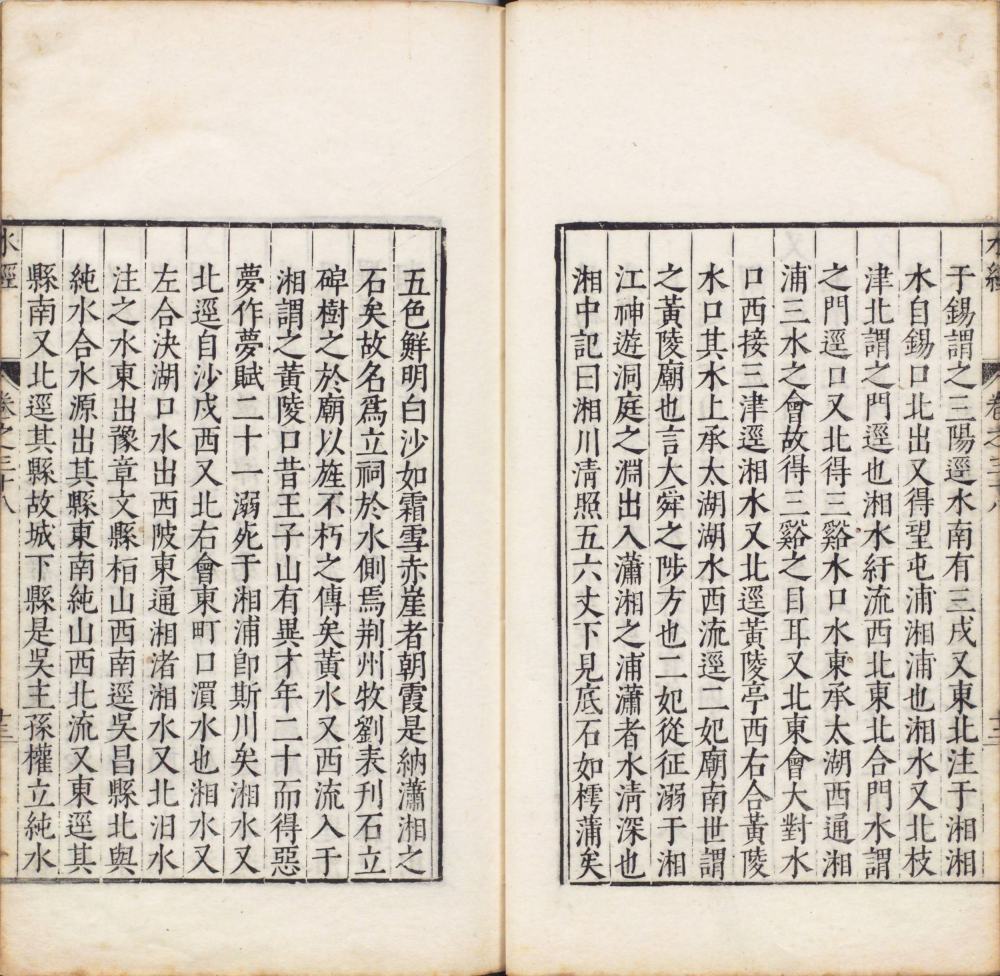 水經
卷之三十八
十三
于錫謂之三陽逕水南有三戍又東北注于湘湘
水自錫口北出又得望屯浦湘浦也湘水又北枝
津北謂之門逕也湘水紆流西北東北合門水謂
之門逕口又北得三谿水口水東承太湖西通湘
浦三水之會故得三谿之目耳又北東會大對水
口西接三津逕湘水又北逕黃陵亭西右合黃陵
水口其水上承太湖湖水西流逕二妃廟南世謂
之黃陵廟也言大舜之陟方也二妃從征溺于湘
江神遊洞庭之淵出入瀟湘之浦瀟者水清深也
湘中記曰湘川清照五六丈下見底石如樗蒲矣
五色鮮明白沙如霜雪赤崖者朝霞是納瀟湘之
石矣故名爲立祠於水側焉荆州牧劉表刊石立
碑樹之於廟以旌不朽之傳矣黃水又西流入于
湘謂之黃陵口昔王子山有異才年二十而得惡
夢作夢賦二十一溺死于湘浦卽斯川矣湘水又
北逕自沙戍西又北右會東町口湏水也湘水又
左合決湖口水出西陂東通湘渚湘水又北汨水
注之水東出豫章文縣桓山西南逕吳昌縣北與
純水合水源出其縣東南純山西北流又東逕其
縣南又北逕其縣故城下縣是吳主孫權立純水
水經
卷之三十八
十三